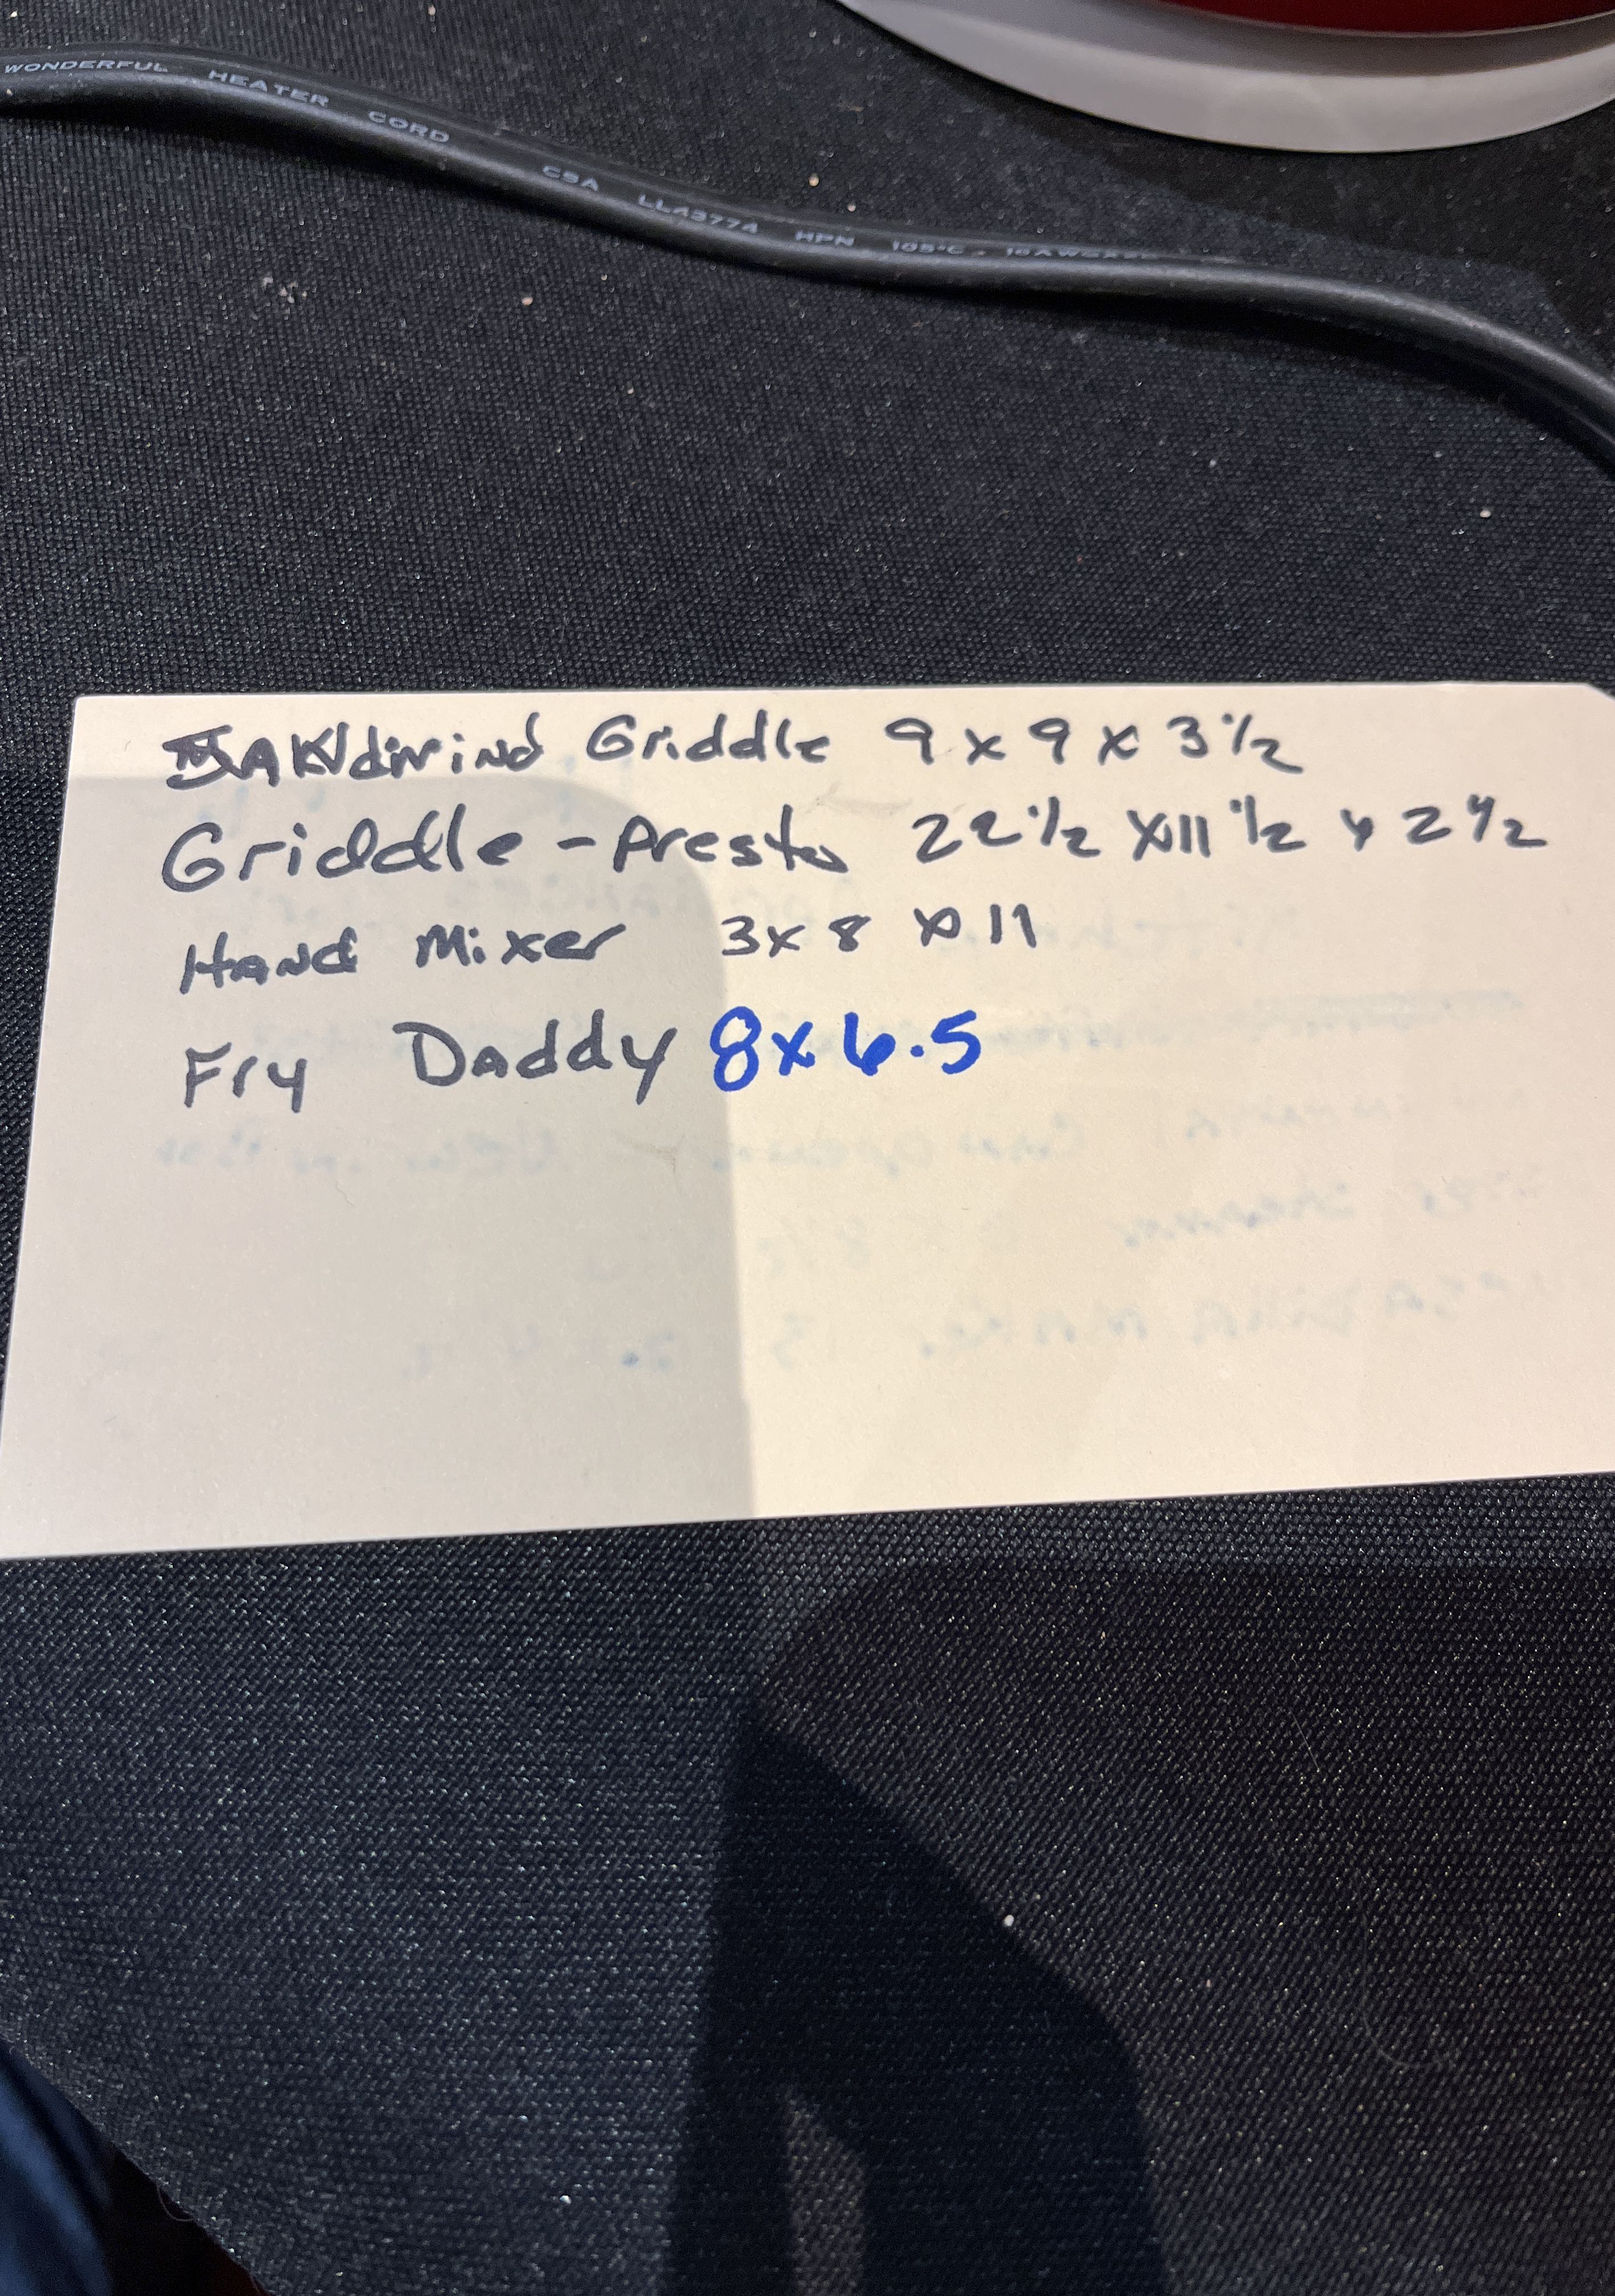 WONDERFUL HEATER CORD CSA LL43774 HPN 105°C
Griddle 9 x 9 x 3 1/2
Griddle - Presto 22 1/2 x 11 1/2 x 2 1/2
Hand Mixer 3 x 8 x 11
Fry Daddy 8x6.5